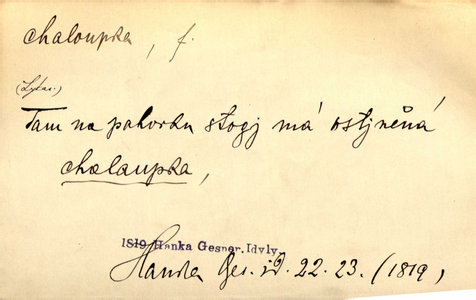 chaloupka, f.
Tam na pahorku stogj má ostjněná
chalaupka,
1819 Hanka Gesner. Idyly
Hanka Ges. id. 22. 23. (1819,